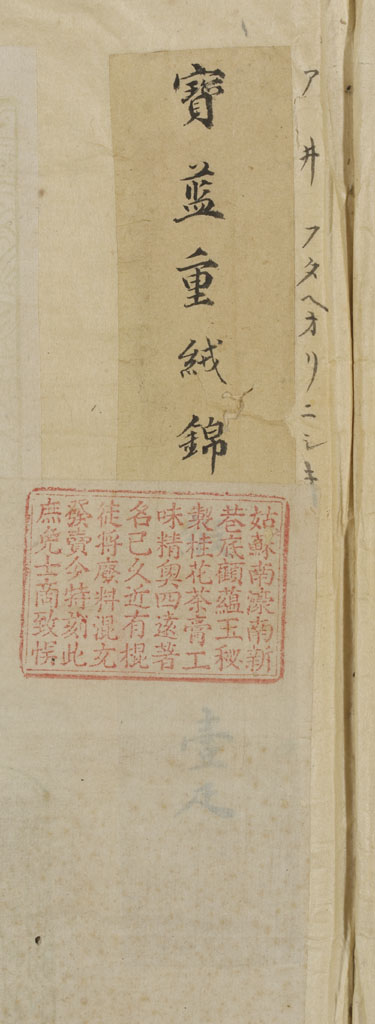 アヰ フタヘオリニシキ
寶藍重絨錦
姑蘇南濠南新
巷底顧蘊玉秘
製桂花茶膏工
味精奧四遠著
名已久近有棍
徒將廢料混充
發賣今特刻此
庶免士商致悮
壹疋